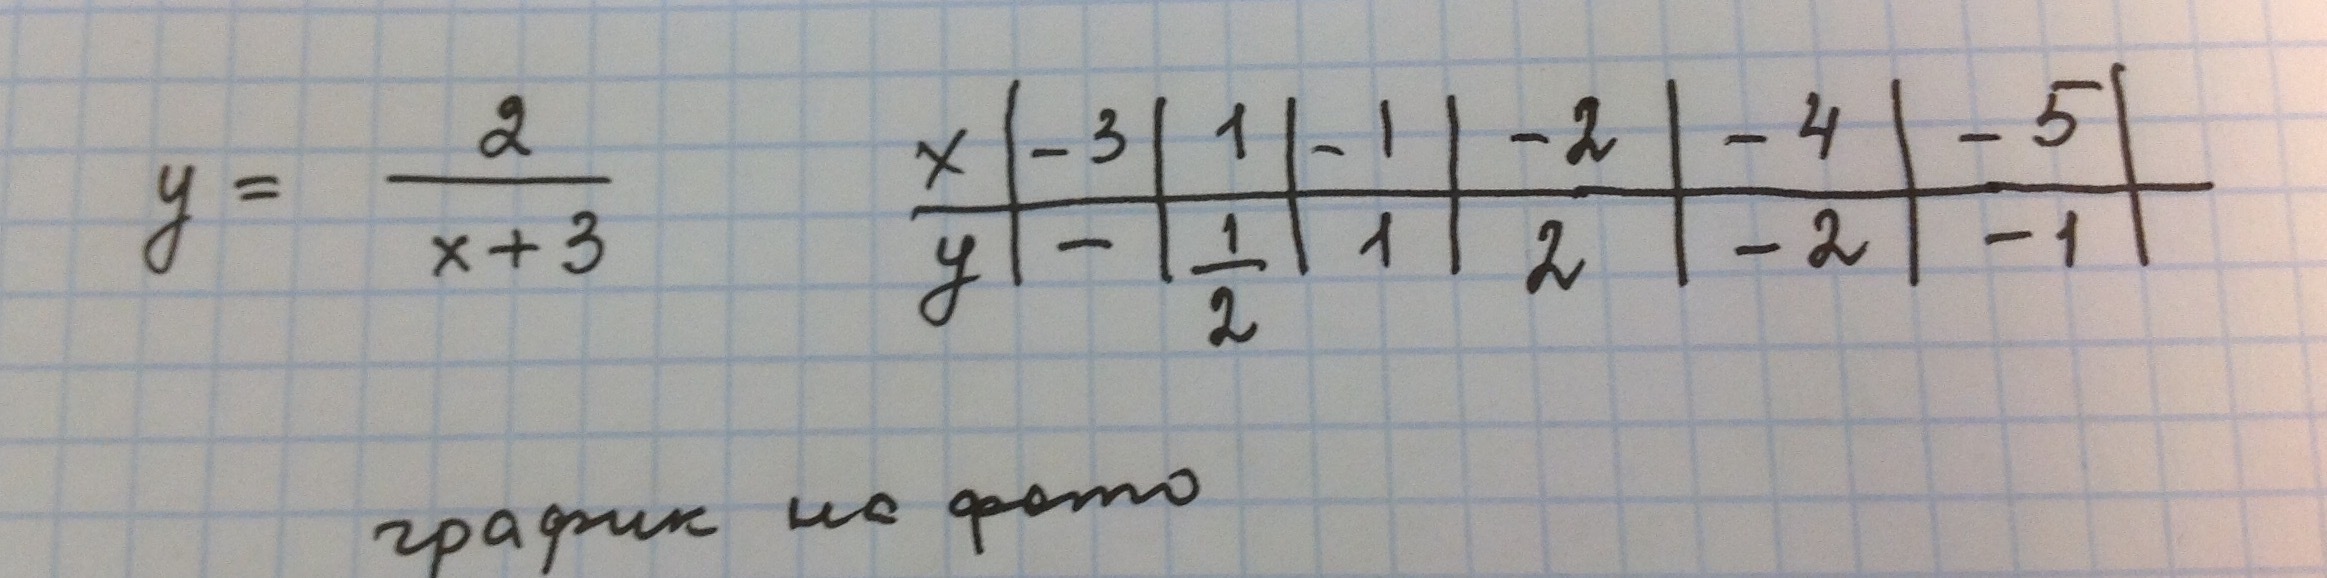 y = 2/(x+3)
x | -3 | 1 | -1 | -2 | -4 | -5 |
y | - | 1/2 | 1 | 2 | -2 | -1 |
график на фото